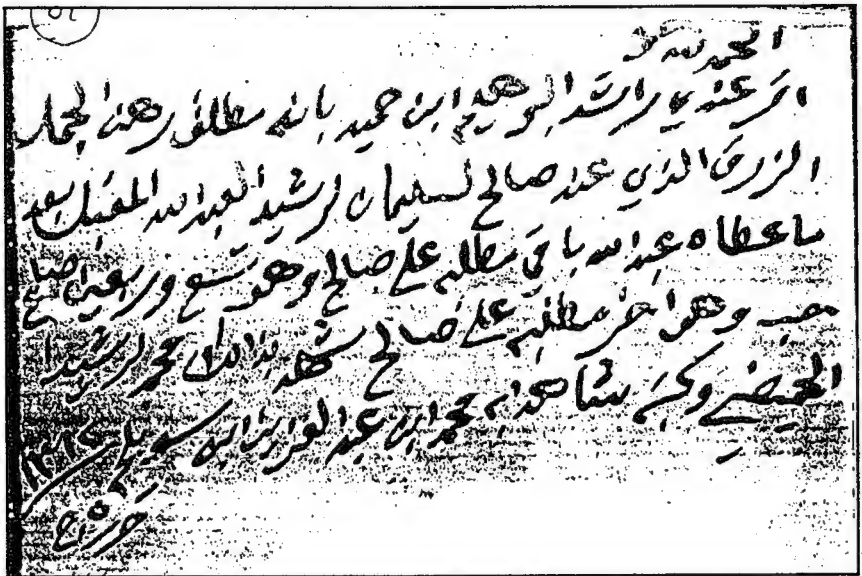 الحمد لله
اقر عندي راشد البوهيم ابن حميد بانه مطلق رهن الجمل
الزرق الذي عند صالح لسليمان لرشيد العبدالله المقبل بعد
ما عطاه عبدالله باقي مطلبه على صالح وهو تسع وربعين صاع
حب وهو اخر مطلبه على صالح شهد بذالك محمد الرشيد
الحميضي وكتبه شاهد به محمد ابن عبد العزيز ابن سويلم